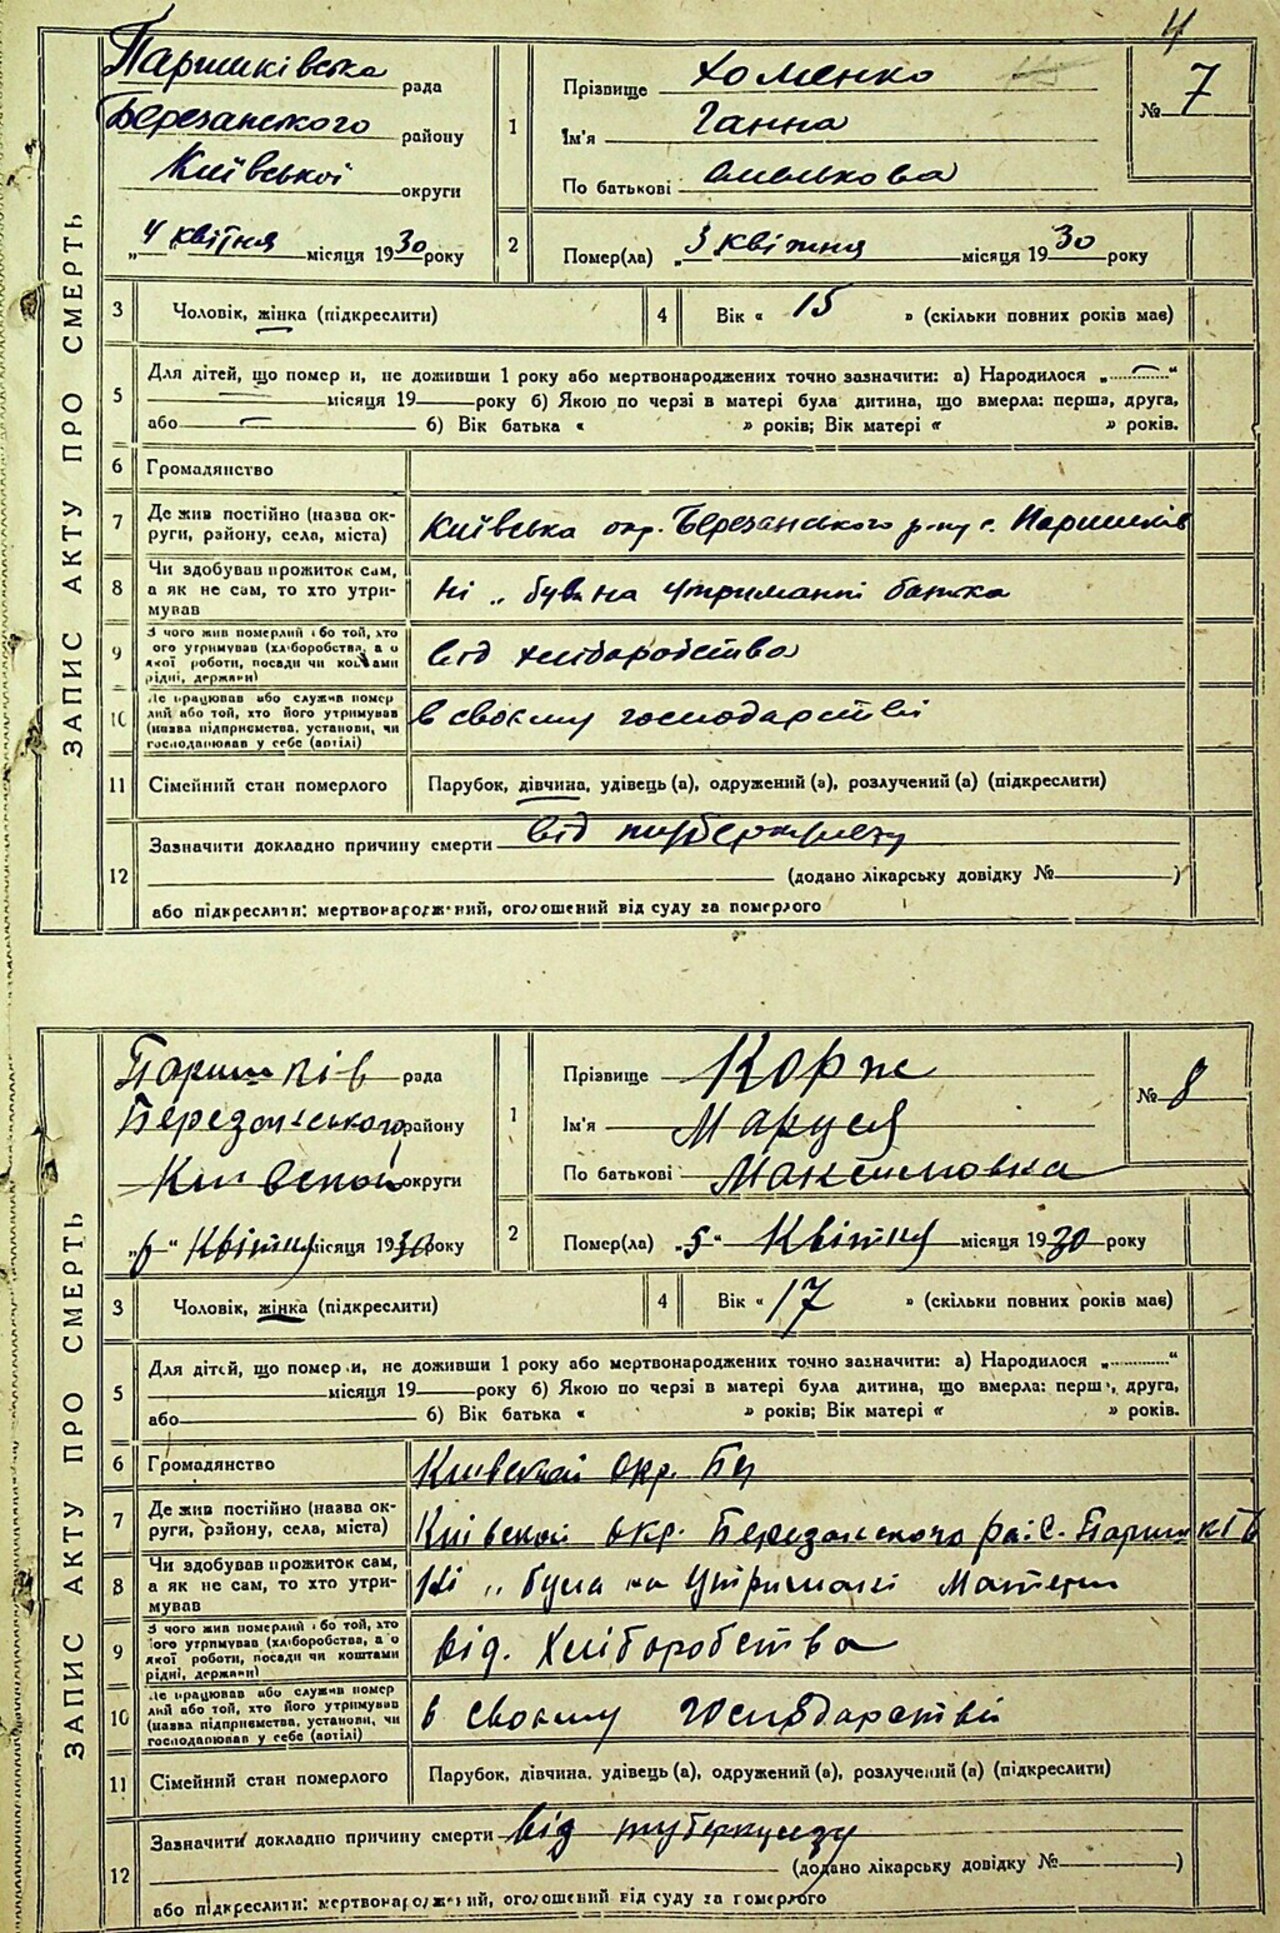 4
ЗАПИС АКТУ ПРО СМЕРТЬ
Паришківська рада
Березанського району
Київської округи
„4 квітня місяця 1930 року
1
Прізвище Хоменко
Ім'я Ганна
По батькові Омелькова
№ 7
2
Помер(ла) „3 квітня місяця 1930 року
3 Чоловік, жінка (підкреслити)
4 Вік « 15 » (скільки повних років має)
5
Для дітей, що помер и, не доживши 1 року або мертвонароджених точно зазначити: а) Народилося „ “
місяця 19 року б) Якою по черзі в матері була дитина, що вмерла: перша, друга,
або б) Вік батька « » років; Вік матері « » років.
6 Громадянство
7 Де жив постійно (назва ок-
руги, району, села, міста) Київська окр. Березанського р-ну с. Паришків
8 Чи здобував прожиток сам,
а як не сам, то хто утри-
мував Ні „ був на утриманні батька
9 З чого жив померлий або той, хто
ого утримував (хліборобства, а о
якої роботи, посади чи коштами
рідні, держави) від хліборобства
10 Де працював або служив помер
лий або той, хто його утримував
(назва підприємства, установи, чи
господарював у себе (артілі) в своєму господарстві
11 Сімейний стан померлого Парубок, дівчина, удівець (а), одружений (а), розлучений (а) (підкреслити)
12
Зазначити докладно причину смерти від туберкульозу
(додано лікарську довідку № )
або підкреслити: мертвонароджений, оголошений від суду за померлого
ЗАПИС АКТУ ПРО СМЕРТЬ
Паришків рада
Березанського району
Киівской округи
„6“ Квітня місяця 1930 року
1
Прізвище Корж
Ім'я Маруся
По батькові Максимовна
№ 8
2
Помер(ла) „5“ Квітня місяця 1930 року
3 Чоловік, жінка (підкреслити)
4 Вік « 17 » (скільки повних років має)
5
Для дітей, що помер и, не доживши 1 року або мертвонароджених точно зазначити: а) Народилося „ “
місяця 19 року б) Якою по черзі в матері була дитина, що вмерла: перша, друга,
або б) Вік батька « » років; Вік матері « » років.
6 Громадянство Киівской окр. Бер
7 Де жив постійно (назва ок-
руги, району, села, міста) Киівской окр. Березанского рай. С. Паришків
8 Чи здобував прожиток сам,
а як не сам, то хто утри-
мував Ні „ була на утримані Матери
9 З чого жив померлий або той, хто
його утримував (хліборобства, а о
якої роботи, посади чи коштами
рідні, держави) від. Хліборобства
10 Де працював або служив помер
лий або той, хто його утримував
(назва підприємства, установи, чи
господарював у себе (артілі) в своєму господарстві
11 Сімейний стан померлого Парубок, дівчина, удівець (а), одружений (а), розлучений (а) (підкреслити)
12
Зазначити докладно причину смерти від туберкулізу
(додано лікарську довідку № )
або підкреслити: мертвонароджений, оголошений від суду за померлого